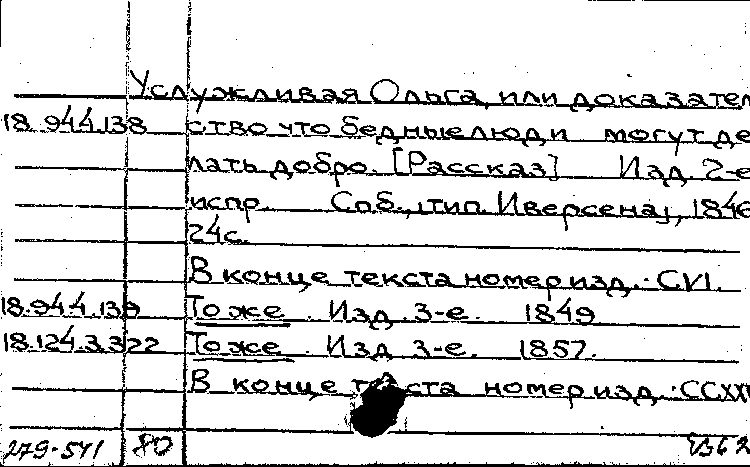 Услужливая Ольга, или доказател
18.944.138 ство что бедные люди могут де
лать добро. [Рассказ] Изд. 2-е
испр. Спб., тип. Иверсена, 1846
24с.
В конце текста номер изд.: CVI.
18.944.139 То же. Изд. 3-е. 1849
18.124.3.322 То же. Изд. 3-е. 1857.
В конце текста номер изд.: CCXX
279-541 80